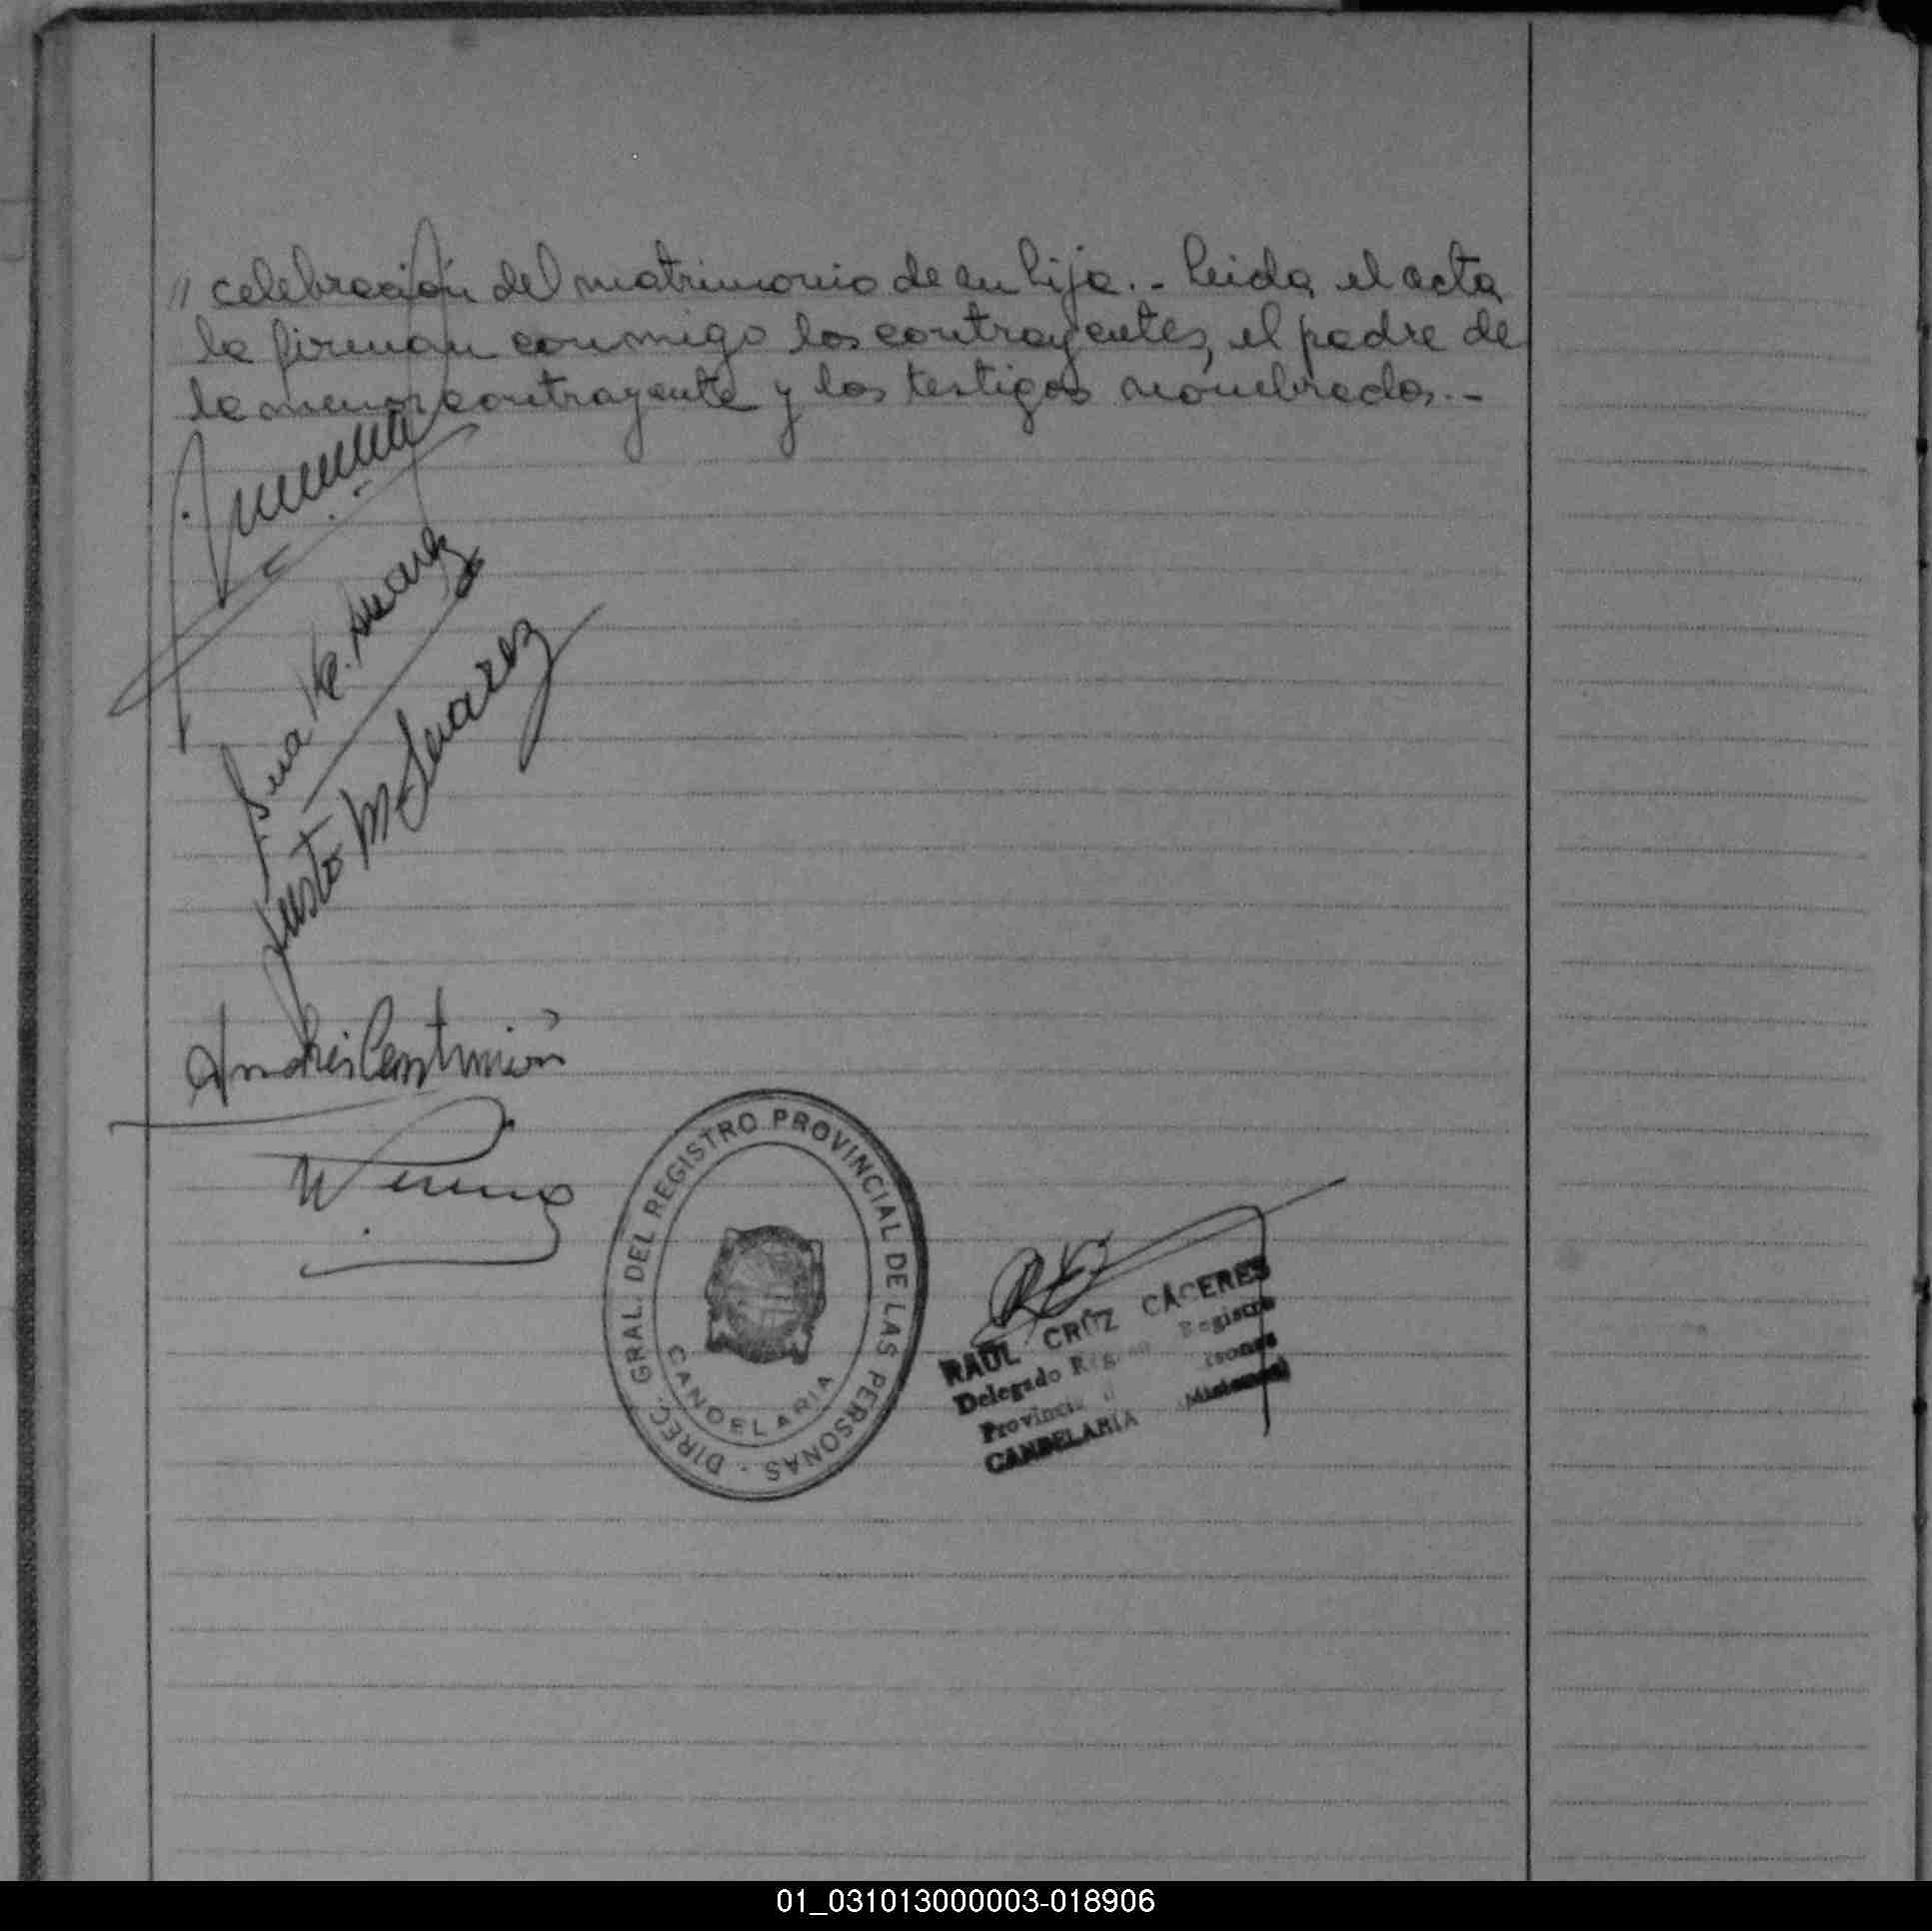 // celebración del matrimonio de su hija.- Leida el acta
la firman conmigo los contrayentes, el padre de
la menor contrayente y los testigos nombrados.-
Suarez
Justo M Suarez
Andrés
DIREC. GRAL. DEL REGISTRO PROVINCIAL DE LAS PERSONAS -
CANDELARIA
RAUL CRUZ CACERES
Delegado Registro
Provincia
CANDELARIA (Misiones)
01_031013000003-018906